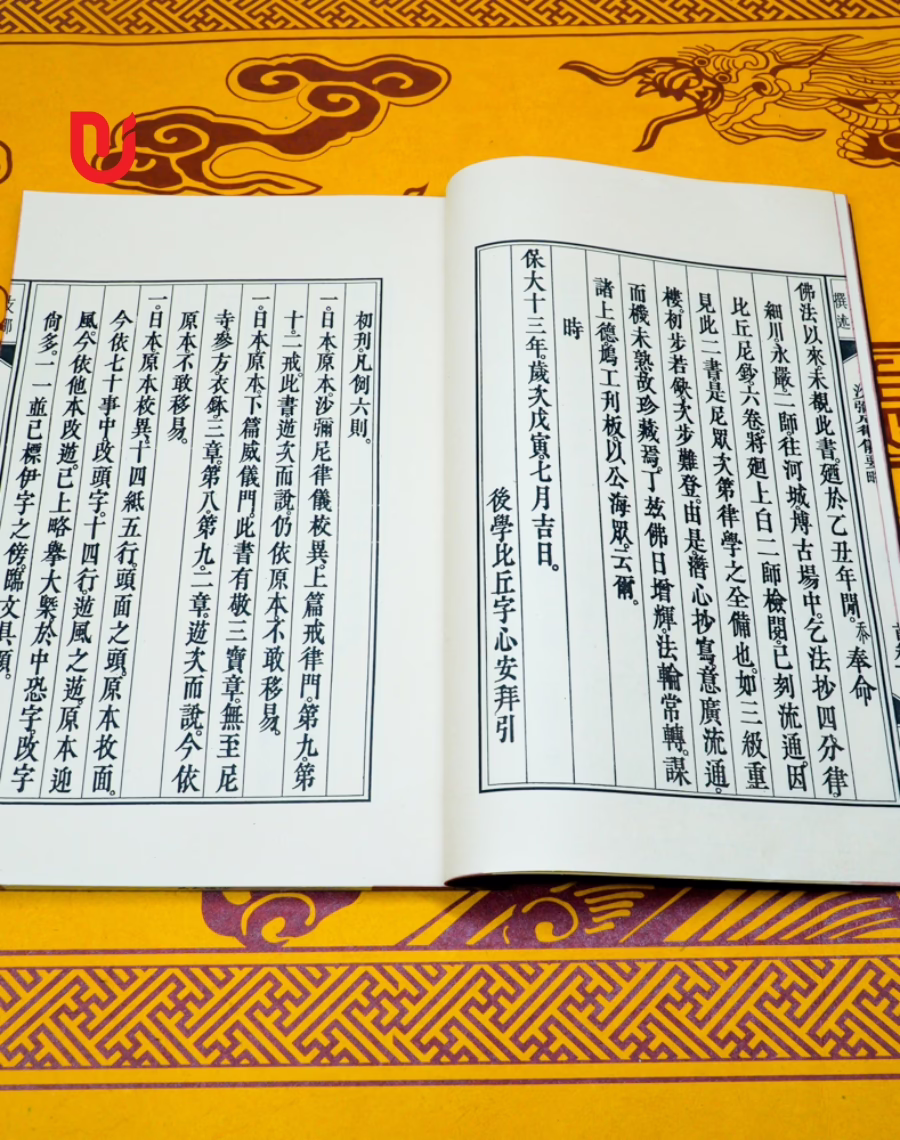 佛法以來。未覩此書。廼於乙丑年閒。忝奉命
細川。永嚴。二師。往河城。博古場中。乞法抄四分律
比丘尼鈔。六卷。將廻上白二師檢閱。已刻流通。因
見此二書是尼眾次第律學之全備也。如三級重
樓。初步若缺。次步難登。由是潛心抄寫。意廣流通。
而機未熟。故珍藏焉。丁茲佛日增輝。法輪常轉。謀
諸上德。鳩工刊板。以公海眾。云爾。
時
保大十三年。歲次戊寅。七月吉日。
後學比丘字心安拜引
初刊。凡例六則。
一。日本原本。沙彌尼律儀校異。上篇戒律門。第九。第
十。二戒。此書遊次而說。仍依原本。不敢移易。
一。日本原本。下篇威儀門。此書有敬三寶章。無至尼
寺。參方。衣鉢。三章。第八。第九。二章。遊次而說。今依
原本。不敢移易。
一。日本原本校異。十四紙五行。頭面之頭。原本抆面。
今依七十事中。改頭字。十四行。遊風之遊。原本迎
風。今依他本改遊。已上略擧大槩。於中恐字。改字
尙多。一一並已標伊字之傍。臨文具須。
撰述